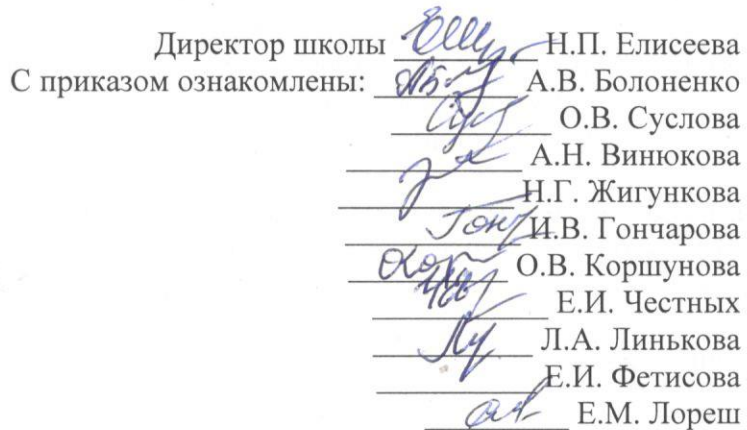 Директор школы Н.П. Елисеева
С приказом ознакомлены: А.В. Болоненко
О.В. Суслова
А.Н. Винюкова
Н.Г. Жигункова
И.В. Гончарова
О.В. Коршунова
Е.И. Честных
Л.А. Линькова
Е.И. Фетисова
Е.М. Лореш